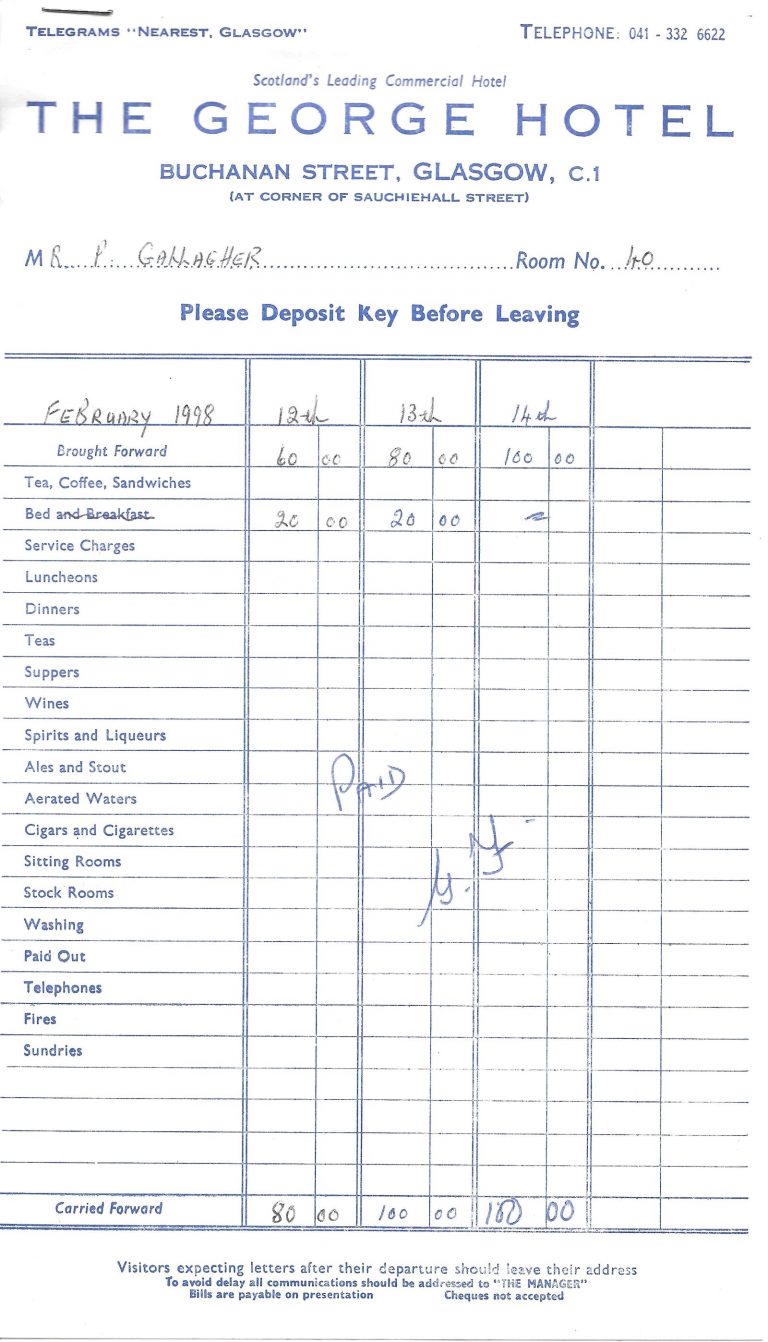 TELEGRAMS "NEAREST, GLASGOW" TELEPHONE: 041 - 332 6622
Scotland's Leading Commercial Hotel
THE GEORGE HOTEL
BUCHANAN STREET, GLASGOW, C.1
(AT CORNER OF SAUCHIEHALL STREET)
MR. P. GALLAGHER Room No. 40
Please Deposit Key Before Leaving
FEBRUARY 1998 12th 13th 14th
Brought Forward 60 00 80 00 100 00
Tea, Coffee, Sandwiches
Bed and Breakfast 20 00 20 00 ~
Service Charges
Luncheons
Dinners
Teas
Suppers
Wines
Spirits and Liqueurs
Ales and Stout
PAID
Aerated Waters
Cigars and Cigarettes
Sitting Rooms
Stock Rooms
Washing
Paid Out
Telephones
Fires
Sundries
Carried Forward 80 00 100 00 100 00
Visitors expecting letters after their departure should leave their address
To avoid delay all communications should be addressed to "THE MANAGER"
Bills are payable on presentation Cheques not accepted